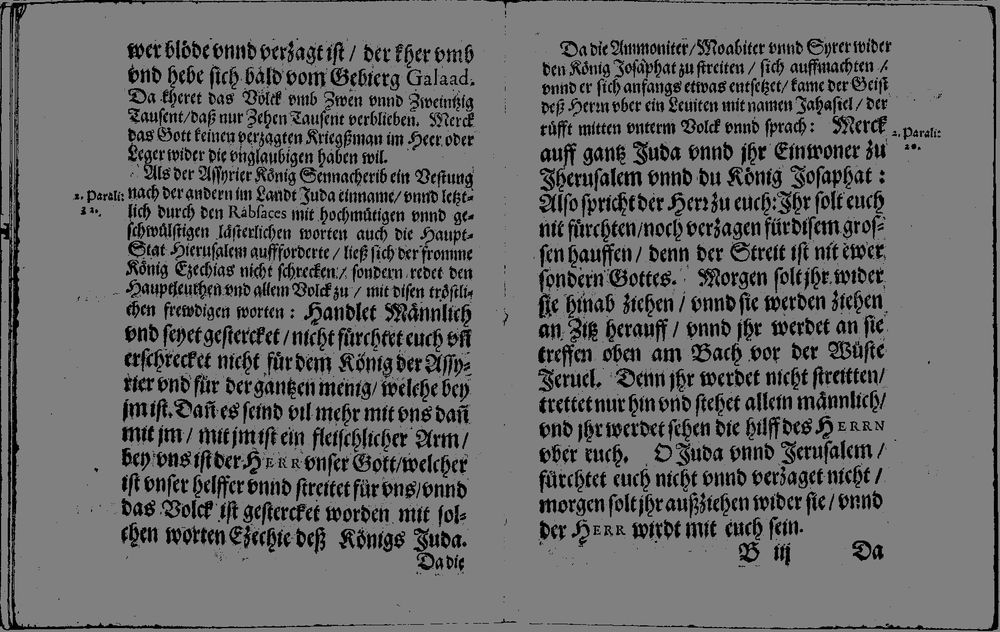 wer blöde vnnd verzagt ist / der kher vmb
vnd hebe sich bald vom Gebierg Galaad.
Da kheret das Volck vmb Zwen vnnd Zweintzig
Tausent/daß nur Zehen Tausent verblieben. Merck
das Gott keinen verzagten Kriegßman im Heer oder
Leger wider die vnglaubigen haben wil.
Als der Assyrier König Sennacherib ein Vestung
2. Parali: nach der andern im Landt Juda einname/ vnnd letzt-
32. lich durch den Rabsaces mit hochmütigen vnnd ge-
schwülstigen lästerlichen worten auch die Haupt-
Stat Hierusalem aufforderte / ließ sich der fromme
König Ezechias nicht schrecken/ sondern redet den
Hauptleuthen vnd allem Volck zu / mit disen tröstli-
chen frewdigen worten : Handlet Männlich
vnd seyet gestercket / nicht fürchtet euch vñ
erschrecket nicht für dem König der Assy-
rier vnd für der gantzen menig/ welche bey
jm ist. Dañ es seind vil mehr mit vns dañ
mit jm / mit jm ist ein fleischlicher Arm /
bey vns ist der HERR vnser Gott/welcher
ist vnser helffer vnnd streitet für vns/vnnd
das Volck ist gestercket worden mit sol-
chen worten Ezechie deß Königs Juda.
Da die
Da die Ammoniter/Moabiter vnnd Syrer wider
den König Josaphat zu streiten / sich auffmachten /
vnnd er sich anfangs etwas entsetzet/ kame der Geist
deß Herrn vber ein Leuiten mit namen Jahasiel / der
rüfft mitten vnterm Volck vnnd sprach : Merck 2. Parali:
auff gantz Juda vnnd jhr Einwoner zu 20.
Jherusalem vnnd du König Josaphat :
Also spricht der Herr zu euch: Jhr solt euch
nit fürchten/noch verzagen für disem gros-
sen hauffen / denn der Streit ist nit ewer
sondern Gottes. Morgen solt jhr wider
sie hinab ziehen / vnnd sie werden ziehen
an Zitz herauff / vnnd jhr werdet an sie
treffen oben am Bach vor der Wüste
Jeruel. Denn jhr werdet nicht streitten/
trettet nur hin vnd stehet allein männlich/
vnd jhr werdet sehen die hilff des HERRN
vber euch. O Juda vnnd Jerusalem /
fürchtet euch nicht vnnd verzaget nicht /
morgen solt jhr außziehen wider sie / vnnd
der HERR wirdt mit euch sein.
B iij Da